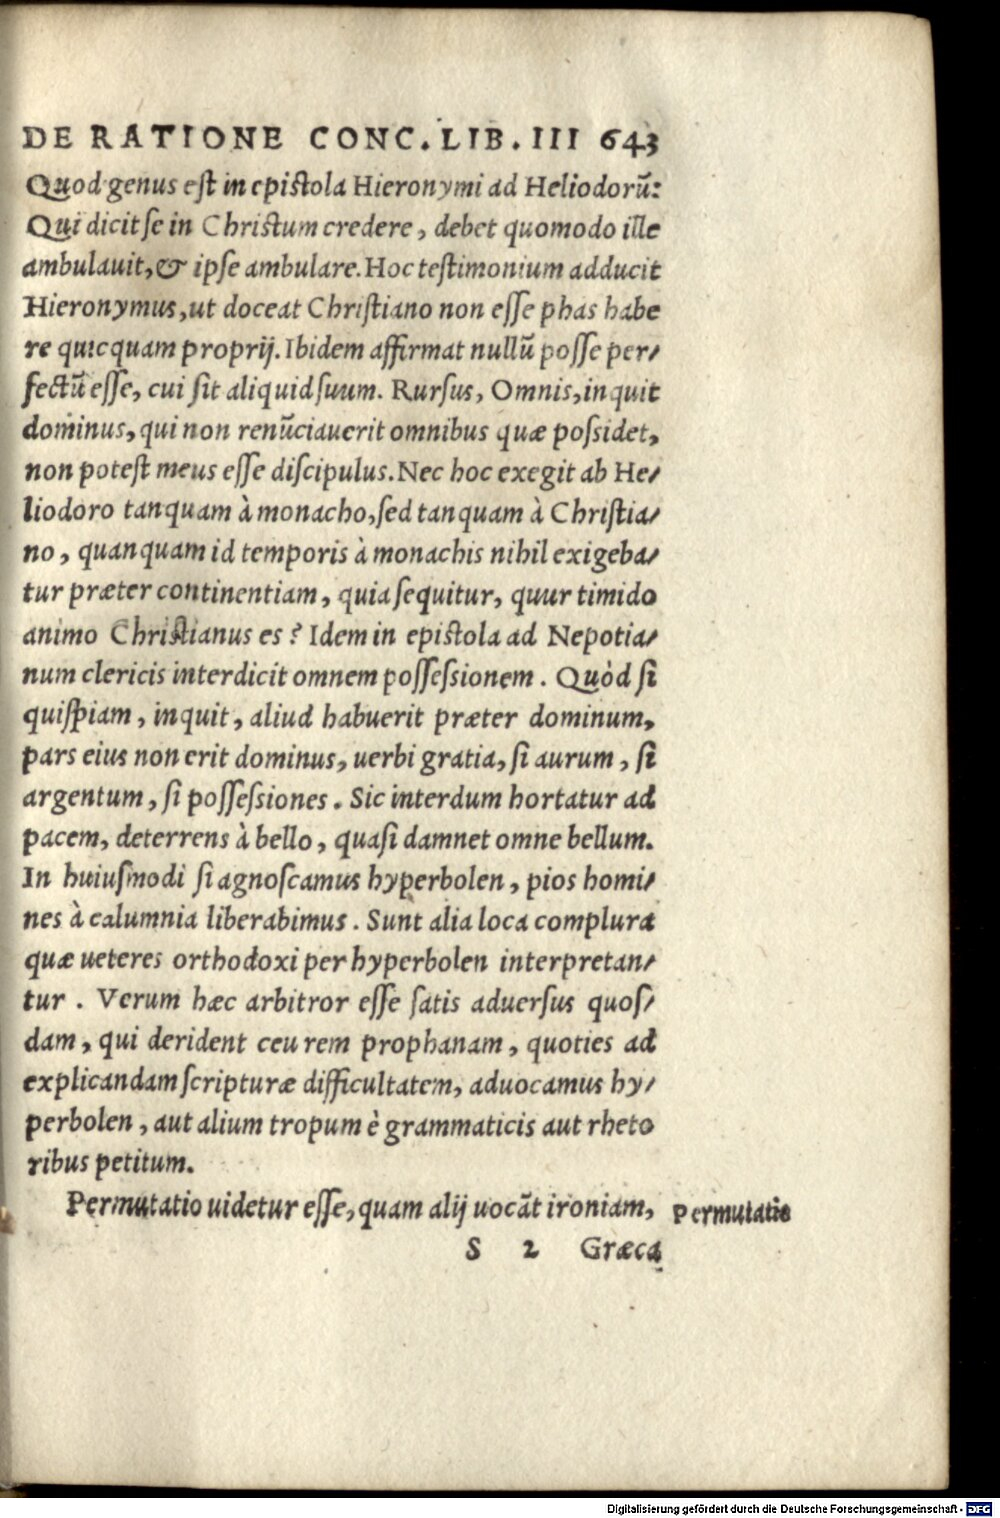 DE RATIONE CONC. LIB. III 643
Quod genus est in epistola Hieronymi ad Heliodorũ:
Qui dicit se in Christum credere, debet quomodo ille
ambulauit, & ipse ambulare. Hoc testimonium adducit
Hieronymus, ut doceat Christiano non esse phas habe
re quicquam proprij. Ibidem affirmat nullũ posse per/
fectũ esse, cui sit aliquid suum. Rursus, Omnis, inquit
dominus, qui non renũciauerit omnibus quæ possidet,
non potest meus esse discipulus. Nec hoc exegit ab He/
liodoro tanquam à monacho, sed tanquam à Christia/
no, quanquam id temporis à monachis nihil exigeba/
tur præter continentiam, quia sequitur, quur timido
animo Christianus es? Idem in epistola ad Nepotia/
num clericis interdicit omnem possessionem. Quòd si
quispiam, inquit, aliud habuerit præter dominum,
pars eius non erit dominus, uerbi gratia, si aurum, si
argentum, si possessiones. Sic interdum hortatur ad
pacem, deterrens à bello, quasi damnet omne bellum.
In huiusmodi si agnoscamus hyperbolen, pios homi/
nes à calumnia liberabimus. Sunt alia loca complura
quæ ueteres orthodoxi per hyperbolen interpretan/
tur. Verum hæc arbitror esse satis aduersus quos/
dam, qui derident ceu rem prophanam, quoties ad
explicandam scripturæ difficultatem, aduocamus hy/
perbolen, aut alium tropum è grammaticis aut rheto
ribus petitum.
Permutatio uidetur esse, quam alij uocãt ironiam, Permutatio
S 2 Græca
Digitalisierung gefördert durch die Deutsche Forschungsgemeinschaft - DFG